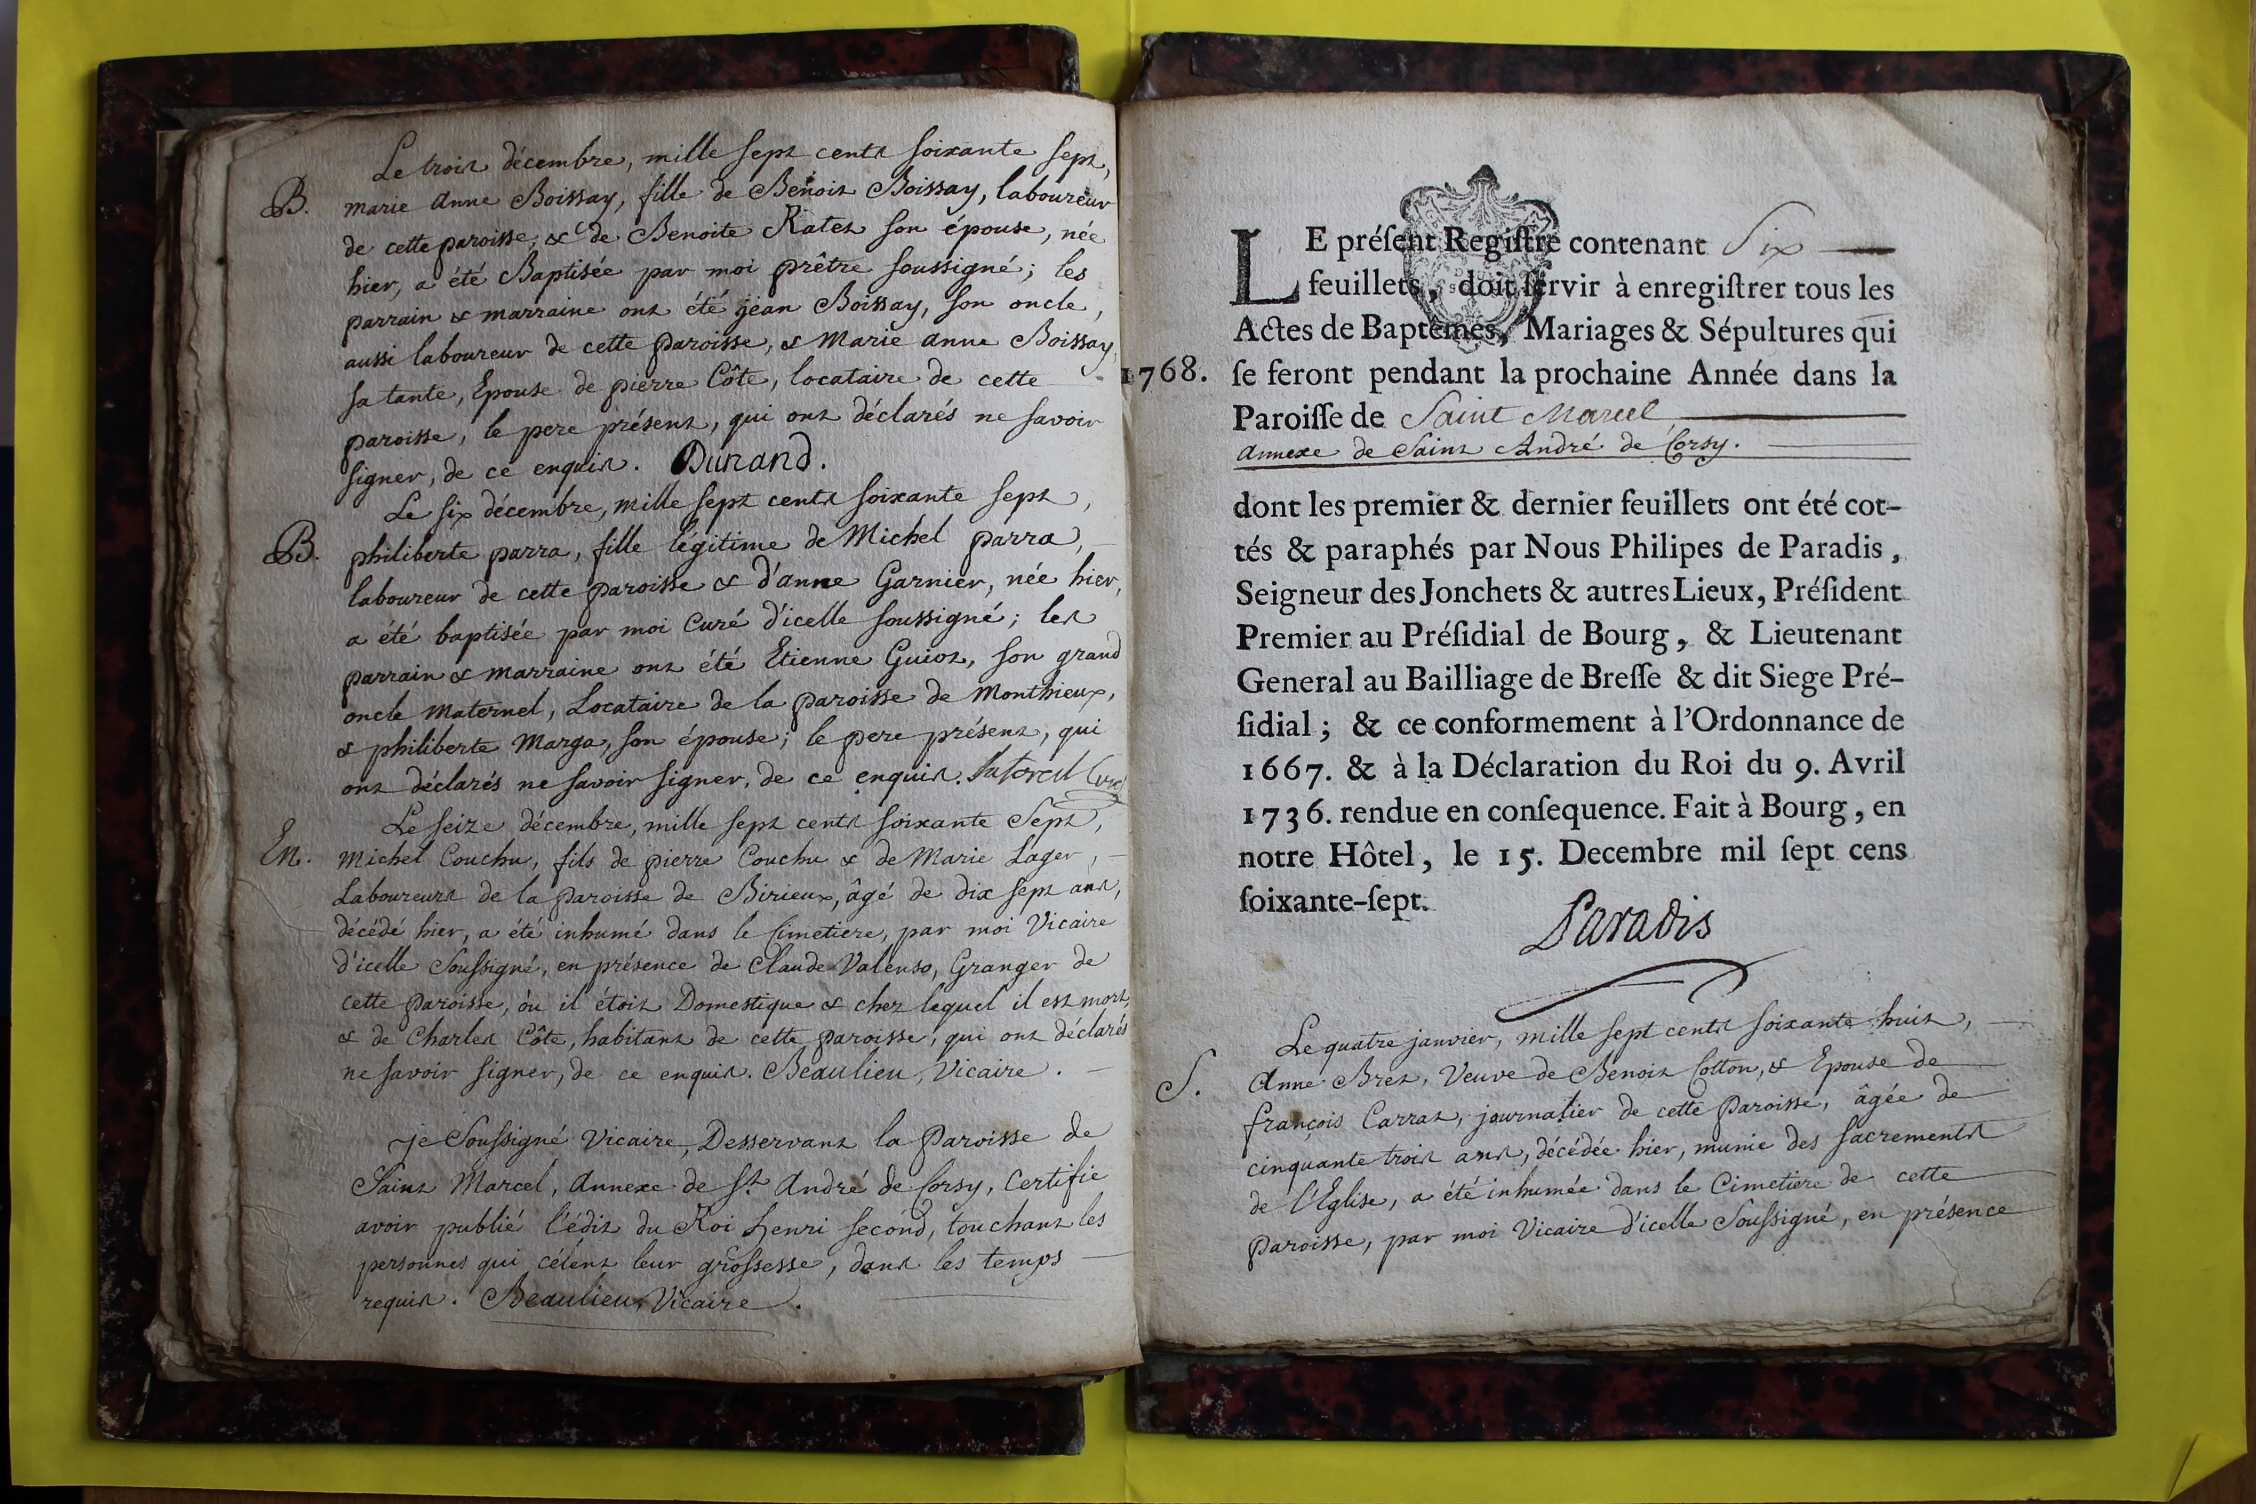 Le trois décembre, mille sept cents soixante sept,
B. marie anne Boissay, fille de Benoit Boissay, laboureur
de cette paroisse, & de Benoite Ratet son épouse, née
hier, a été Baptisée par moi prêtre soussigné; les
parrain & marraine ont été jean Boissay, son oncle,
aussi laboureur de cette paroisse, & Marie anne Boissay,
sa tante, Epouse de pierre Côte, locataire de cette
paroisse, le pere présent, qui ont déclarés ne savoir
signer, de ce enquis. Dunand.
Le six décembre, mille sept cents soixante sept,
B. philiberte parra, fille légitime de Michel parra,
laboureur de cette paroisse & d'anne Garnier, née hier,
a été baptisée par moi Curé d'icelle soussigné; les
parrain & marraine ont été Etienne Guiot, son grand
oncle maternel, Locataire de la paroisse de Monthieux,
& philiberte Marga, son épouse; le pere présent, qui
ont déclarés ne savoir signer, de ce enquis. Curé
Le seize décembre, mille sept cents soixante Sept,
En. Michel Couchu, fils de pierre Couchu & de Marie Lager,
Laboureurs de la paroisse de Birieux, âgé de dix sept ans,
décédé hier, a été inhumé dans le Cimetiere, par moi Vicaire
d'icelle Soussigné, en présence de Claude Valenso, Granger de
cette paroisse, òu il étoit Domestique & chez lequel il est mort,
& de Charles Côte, habitant de cette paroisse, qui ont déclarés
ne savoir signer, de ce enquis. Beaulieu, Vicaire.
je Soussigné Vicaire, Desservant la Paroisse de
Saint Marcel, Annexe de St. André de Corsy, Certifie
avoir publié l'édit du Roi henri second, touchant les
personnes qui célent leur grossesse, dans les temps
requis. Beaulieu, Vicaire.
LE préſent Regiſtre contenant Six
feuillets, doit ſervir à enregiſtrer tous les
Actes de Baptêmes, Mariages & Sépultures qui
1768. ſe feront pendant la prochaine Année dans la
Paroiſſe de Saint Marcel
annexe de Saint André de Corsy.
dont les premier & dernier feuillets ont été cot-
tés & paraphés par Nous Philipes de Paradis,
Seigneur des Jonchets & autres Lieux, Préſident
Premier au Préſidial de Bourg, & Lieutenant
General au Bailliage de Breſſe & dit Siege Pré-
ſidial; & ce conformement à l'Ordonnance de
1667. & à la Déclaration du Roi du 9. Avril
1736. rendue en conſequence. Fait à Bourg, en
notre Hôtel, le 15. Decembre mil ſept cens
ſoixante-ſept.
Paradis
Le quatre janvier, mille sept cents soixante huit,
S. Anne Bret, Veuve de Benoit Cotton, & Epouse de
françois Carrat, journalier de cette Paroisse, âgée de
cinquante trois ans, décédée hier, munie des sacrements
de l'Eglise, a été inhumée dans le Cimetiere de cette
Paroisse, par moi Vicaire d'icelle Soussigné, en présence